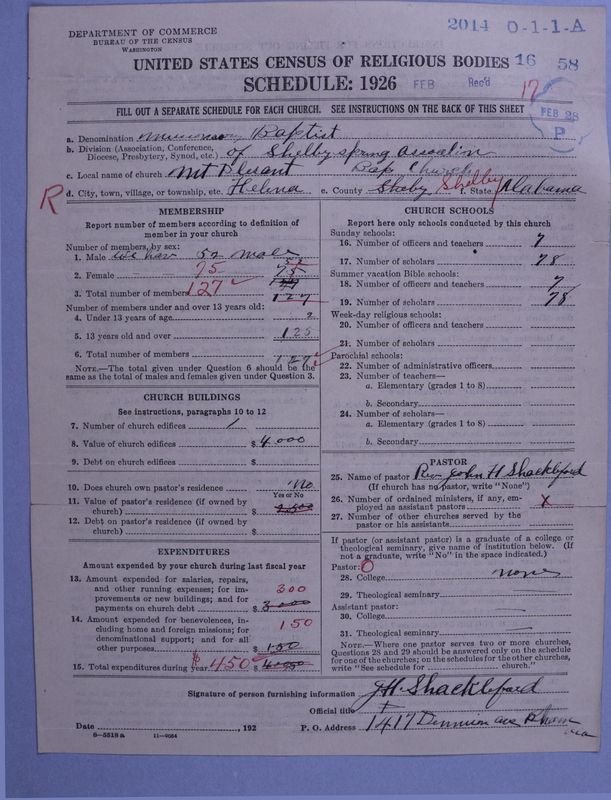 DEPARTMENT OF COMMERCE
BUREAU OF THE CENSUS
WASHINGTON
2014 O-1-1-A
UNITED STATES CENSUS OF RELIGIOUS BODIES 16 58
SCHEDULE: 1926 FEB Rec'd 17
FEB 28
P
FILL OUT A SEPARATE SCHEDULE FOR EACH CHURCH. SEE INSTRUCTIONS ON THE BACK OF THIS SHEET
a. Denomination Baptist
b. Division (Association, Conference, Diocese, Presbytery, Synod, etc.) of Shelby spring
c. Local name of church Mt Bap Church
R d. City, town, village, or township, etc. Helena e. County Shelby f. State Alabama
MEMBERSHIP
Report number of members according to definition of
member in your church
Number of members, by sex:
1. Male We hav 52 male 52
2. Female 75 75
3. Total number of members 127 127
Number of members under and over 13 years old:
4. Under 13 years of age 2
5. 13 years old and over 125
6. Total number of members 127
NOTE.—The total given under Question 6 should be the
same as the total of males and females given under Question 3.
CHURCH BUILDINGS
See instructions, paragraphs 10 to 12
7. Number of church edifices 1
8. Value of church edifices $ 4,000
9. Debt on church edifices $
10. Does church own pastor's residence No
Yes or No
11. Value of pastor's residence (if owned by
church) $
12. Debt on pastor's residence (if owned by
church) $
EXPENDITURES
Amount expended by your church during last fiscal year
13. Amount expended for salaries, repairs,
and other running expenses; for im-
provements or new buildings; and for
payments on church debt 300 $ 3000
14. Amount expended for benevolences, in-
cluding home and foreign missions; for
denominational support; and for all
other purposes 150 $ 150
15. Total expenditures during year $450 $
CHURCH SCHOOLS
Report here only schools conducted by this church
Sunday schools:
16. Number of officers and teachers 7
17. Number of scholars 78
Summer vacation Bible schools:
18. Number of officers and teachers 7
19. Number of scholars 78
Week-day religious schools:
20. Number of officers and teachers
21. Number of scholars
Parochial schools:
22. Number of administrative officers
23. Number of teachers—
a. Elementary (grades 1 to 8)
b. Secondary
24. Number of scholars—
a. Elementary (grades 1 to 8)
b. Secondary
PASTOR
25. Name of pastor Rev John H Shackleford
(If church has no pastor, write "None")
26. Number of ordained ministers, if any, em-
ployed as assistant pastors X
27. Number of other churches served by the
pastor or his assistants
If pastor (or assistant pastor) is a graduate of a college or
theological seminary, give name of institution below. (If
not a graduate, write "No" in the space indicated.)
Pastor: O
28. College none
29. Theological seminary
Assistant pastor:
30. College
31. Theological seminary
NOTE.—Where one pastor serves two or more churches,
Questions 28 and 29 should be answered only on the schedule
for one of the churches; on the schedules for the other churches,
write "See schedule for church."
Signature of person furnishing information J H Shackleford
Official title
Date , 192 P. O. Address 1417 ave
8—5518a 11—9054